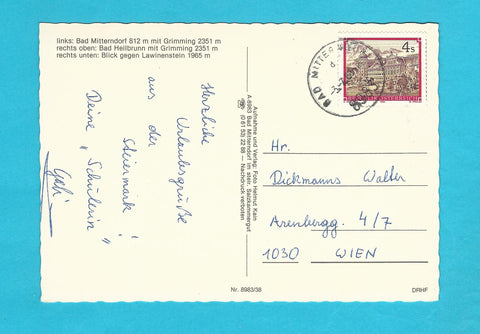 links: Bad Mitterndorf 812 m mit Grimming 2351 m
rechts oben: Bad Heilbrunn mit Grimming 2351 m
rechts unten: Blick gegen Lawinenstein 1965 m
Herzliche
Urlaubsgrüße
aus der
Steiermark!
Deine "Schülerin"
Gabi
Aufnahme und Verlag: Foto Helmut Kain
A-8983 Bad Mitterndorf im steir. Salzkammergut
(0 61 53) 22 88 — Nachdruck verboten
4 S
BAD MITTERNDORF
Hr.
Dickmanns Walter
Arenbergg. 4/7
1030 WIEN
Nr. 8983/38
DRHF